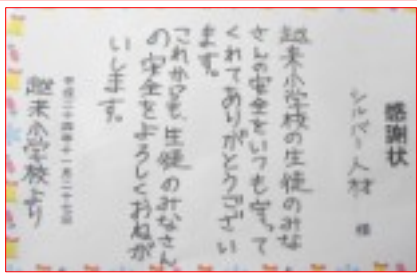 感謝状
シルバー人材 様
越来小学校の生徒のみな
さんの安全をいつも守って
くれてありがとうござい
ます。
これからも、生徒のみなさん
の安全をよろしくおねが
いします。
平成二十四年十一月二十七日
越来小学校より